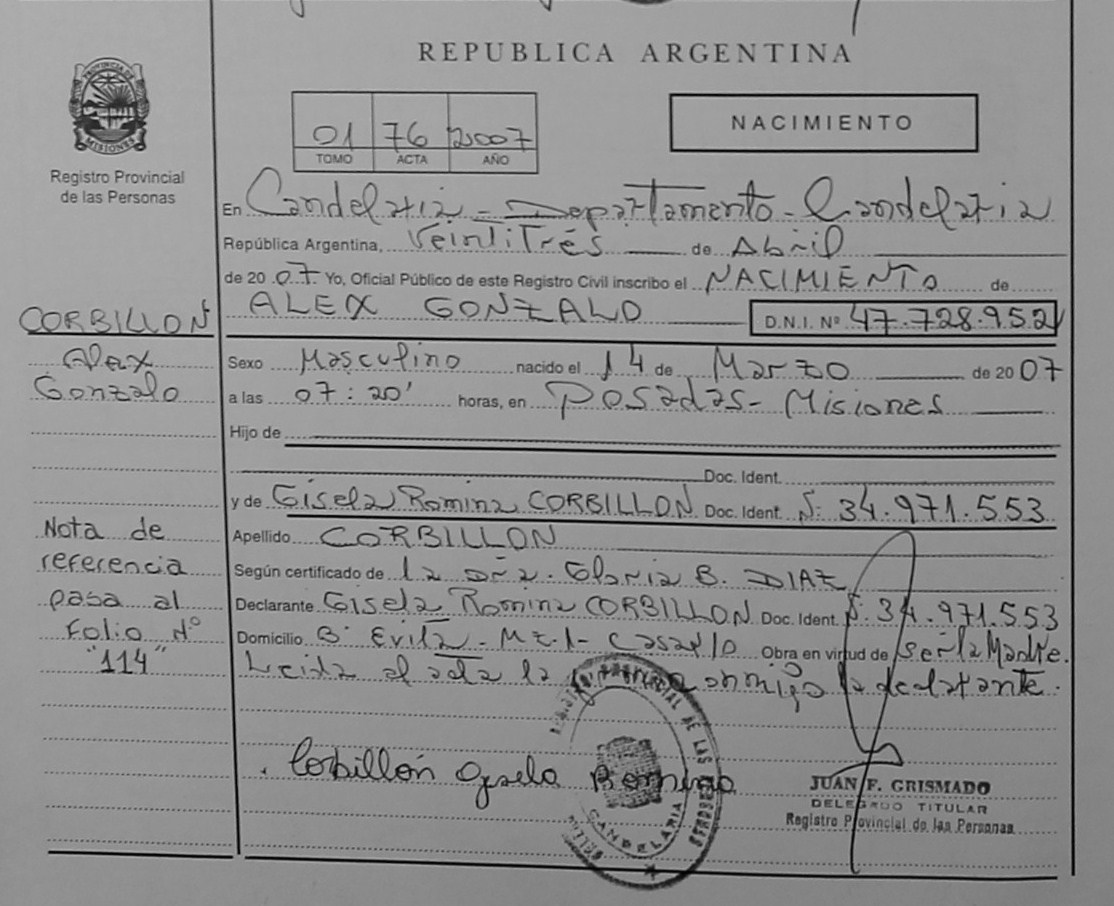 REPUBLICA ARGENTINA
PROVINCIA DE MISIONES
Registro Provincial
de las Personas
01 76 2007
TOMO ACTA AÑO
NACIMIENTO
En Candelaria - Departamento - Candelaria
República Argentina, VeintiTrés de Abril
de 20 07 Yo, Oficial Público de este Registro Civil inscribo el NACIMIENTO de
ALEX GONZALO D.N.I. Nº 47.728.952
CORBILLON
Alex
Gonzalo
Sexo Masculino nacido el 14 de Marzo de 20 07
a las 07:20' horas, en Posadas - Misiones
Hijo de
Doc. Ident.
y de Gisela Romina CORBILLON Doc. Ident. N: 34.971.553
Apellido CORBILLON
Según certificado de la Dra. Gloria B. DIAZ
Declarante Gisela Romina CORBILLON Doc. Ident. N: 34.971.553
Domicilio Bº Evita - Mz. 1 - Casa 10 Obra en virtud de ser la Madre.
Leida el acta la conmigo la declarante.
Nota de
referencia
pasa al
Folio Nº
"114"
Corbillón Gisela Romina
REGISTRO PROVINCIAL DE LAS PERSONAS
CANDELARIA
JUAN F. GRISMADO
DELEGADO TITULAR
Registro Provincial de las Personas